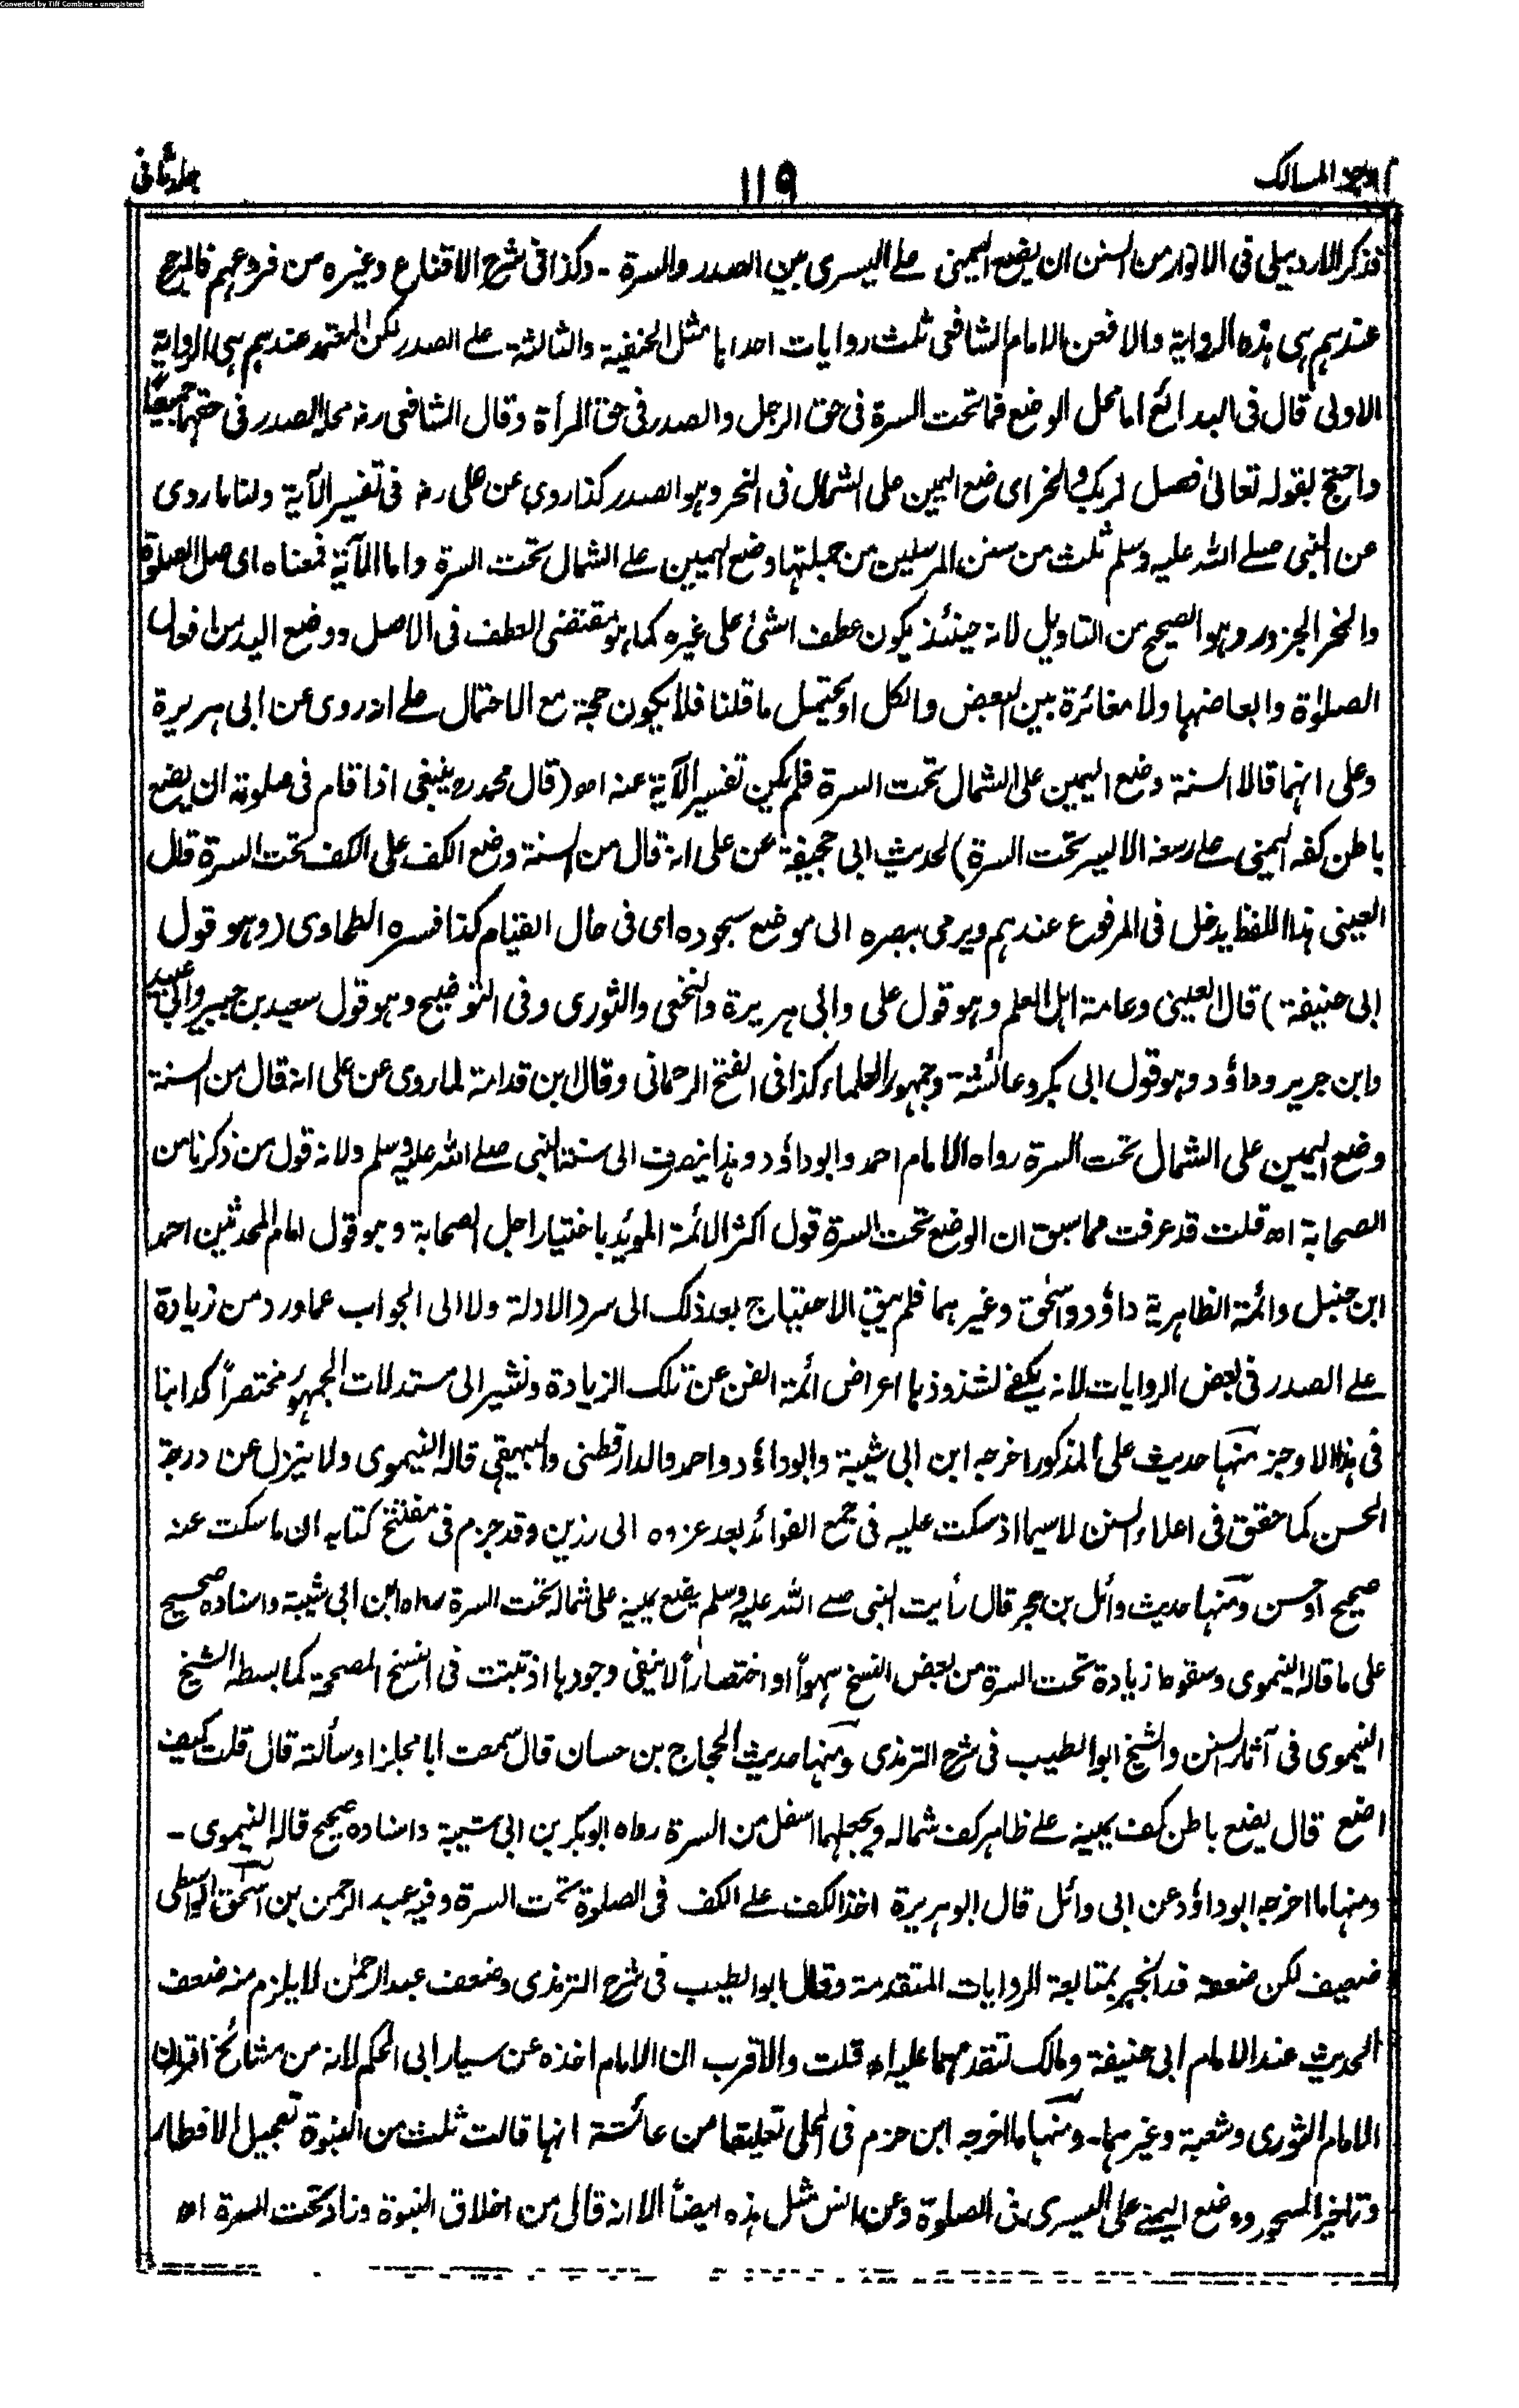 Converted by Tiff Combine - unregistered
اوجز المسالک
١١٩
جلد ثانی
فذكر الاردبيلى فى الانوار من السنن ان يضع اليمنى على اليسرى بين الصدر والسرة - وكذا فى شرح الاقناع وغيره من فروعهم فالمرجح
عندهم هى هذه الرواية والا فعن الامام الشافعى ثلث روايات احداها مثل الحنفية والثالثة على الصدر لكن المعتمد عندهم هى الرواية
الاولى قال فى البدائع اما محل الوضع فما تحت السرة فى حق الرجل والصدر فى حق المرأة وقال الشافعى رم محله الصدر فى حقهما جميعًا
واحتج بقوله تعالى فصل لربك وانحر اى ضع اليمين على الشمال فى النحر وهو الصدر كذا روى عن على رم فى تفسير الآية ولنا ما روى
عن النبى صلى الله عليه وسلم ثلث من سنن المرسلين من جملتها وضع اليمين على الشمال تحت السرة واما الآية فمعناه اى صل الصلوة
وانحر الجزور وهو الصحيح من التاويل لانه حينئذ يكون عطف الشئ على غيره كما هو مقتضى العطف فى الاصل ووضع اليد من افعال
الصلوٰة وابعاضها ولا مغائرة بين البعض والكل او يحتمل ما قلنا فلا يكون حجة مع الاحتمال على انه روى عن ابى هريرة
وعلى انهما قالا السنة وضع اليمين على الشمال تحت السرة فلم يكن تفسير الآية عنه اھ (قال محمد رہ ينبغى اذا قام فى صلوته ان يضع
باطن كفه اليمنى على رسغه الاليسر تحت السرة) لحديث ابى جحيفة عن على انه قال من السنة وضع الكف على الكف تحت السرة قال
العينى هذا اللفظ يدخل فى المرفوع عندهم ويرمى ببصره الى موضع سجوده اى فى حال القيام كذا فسره الطحاوى (وهو قول
ابى حنيفة) قال العينى وعامة اهل العلم وهو قول على وابى هريرة والنخعى والثورى وفى التوضيح وهو قول سعيد بن جبير وابى عبيد
وابن جرير وداؤد وهو قول ابى بكر وعائشة وجمهور العلماء كذا فى الفتح الرحمانى وقال ابن قدامة لما روى عن على انه قال من السنة
وضع اليمين على الشمال تحت السرة رواه الامام احمد وابوداؤد وهذا ينصرف الى سنة النبى صلى الله عليه وسلم ولانه قول من ذكرنا من
الصحابة اھ قلت قد عرفت مما سبق ان الوضع تحت السرة قول اكثر الائمة المويد باختيار اجل الصحابة وهو قول امام المحدثين احمد
ابن حنبل وائمة الظاهرية داؤد واسحٰق وغيرهما فلم يبق الاحتياج بعد ذلك الى سرد الادلة ولا الى الجواب عما ورد من زيادة
على الصدر فى بعض الروايات لانه يكفى لشذوذها اعراض ائمة الفن عن تلك الزيادة ونشير الى مستدلات الجمهور مختصراً كدابنا
فى هذا الاوجز منها حديث على المذكور اخرجه ابن ابى شيبة وابوداؤد واحمد والدارقطنى والبيهقى قاله النيموى ولا ينزل عن درجة
الحسن كما حقق فى اعلاء السنن لاسيما اذ سكت عليه فى جمع الفوائد بعد عزوه الى رزين وقد جزم فى مفتتح كتابه ان ما سكت عنه
صحيح او حسن ومنها حديث وائل بن حجر قال رأيت النبى صلى الله عليه وسلم يضع يمينه على شماله تحت السرة رواه ابن ابى شيبة واسناده صحيح
على ما قاله النيموى وسقوط زيادة تحت السرة من بعض النسخ سهواً او اختصاراً لا ينفى وجودها اذ ثبتت فى النسخ المصححة كما بسطه الشيخ
النيموى فى آثار السنن والشيخ ابو الطيب فى شرح الترمذى ومنها حديث الحجاج بن حسان قال سمعت ابا مجلز او سألته قال قلت كيف
اضع قال يضع باطن كف يمينه على ظاهر كف شماله ويجعلهما اسفل من السرة رواه ابوبكر بن ابى شيبة واسناده صحيح قاله النيموى -
ومنها ما اخرجه ابوداؤد عن ابى وائل قال ابو هريرة اخذ الكف على الكف فى الصلوة تحت السرة وفيه عبد الرحمن بن اسحٰق الواسطى
ضعيف لكن ضعفه قد انجبر بمتابعة الروايات المتقدمة وقال ابو الطيب فى شرح الترمذى وضعف عبد الرحمٰن لا يلزم منه ضعف
الحديث عند الامام ابى حنيفة ومالك لتقدمهما عليه اھ قلت والاقرب ان الامام اخذه عن سيار ابى الحكم لانه من مشائخ اقران
الامام الثورى وشعبة وغيرهما - ومنها ما اخرجه ابن حزم فى المحلى تعليقا من عائشة انها قالت ثلث من النبوة تعجيل الافطار
وتاخير السحور ووضع اليمنى على اليسرى فى الصلوة وعن انس مثل هذه ايضاً الا انه قال من اخلاق النبوة وزاد تحت السرة اھ